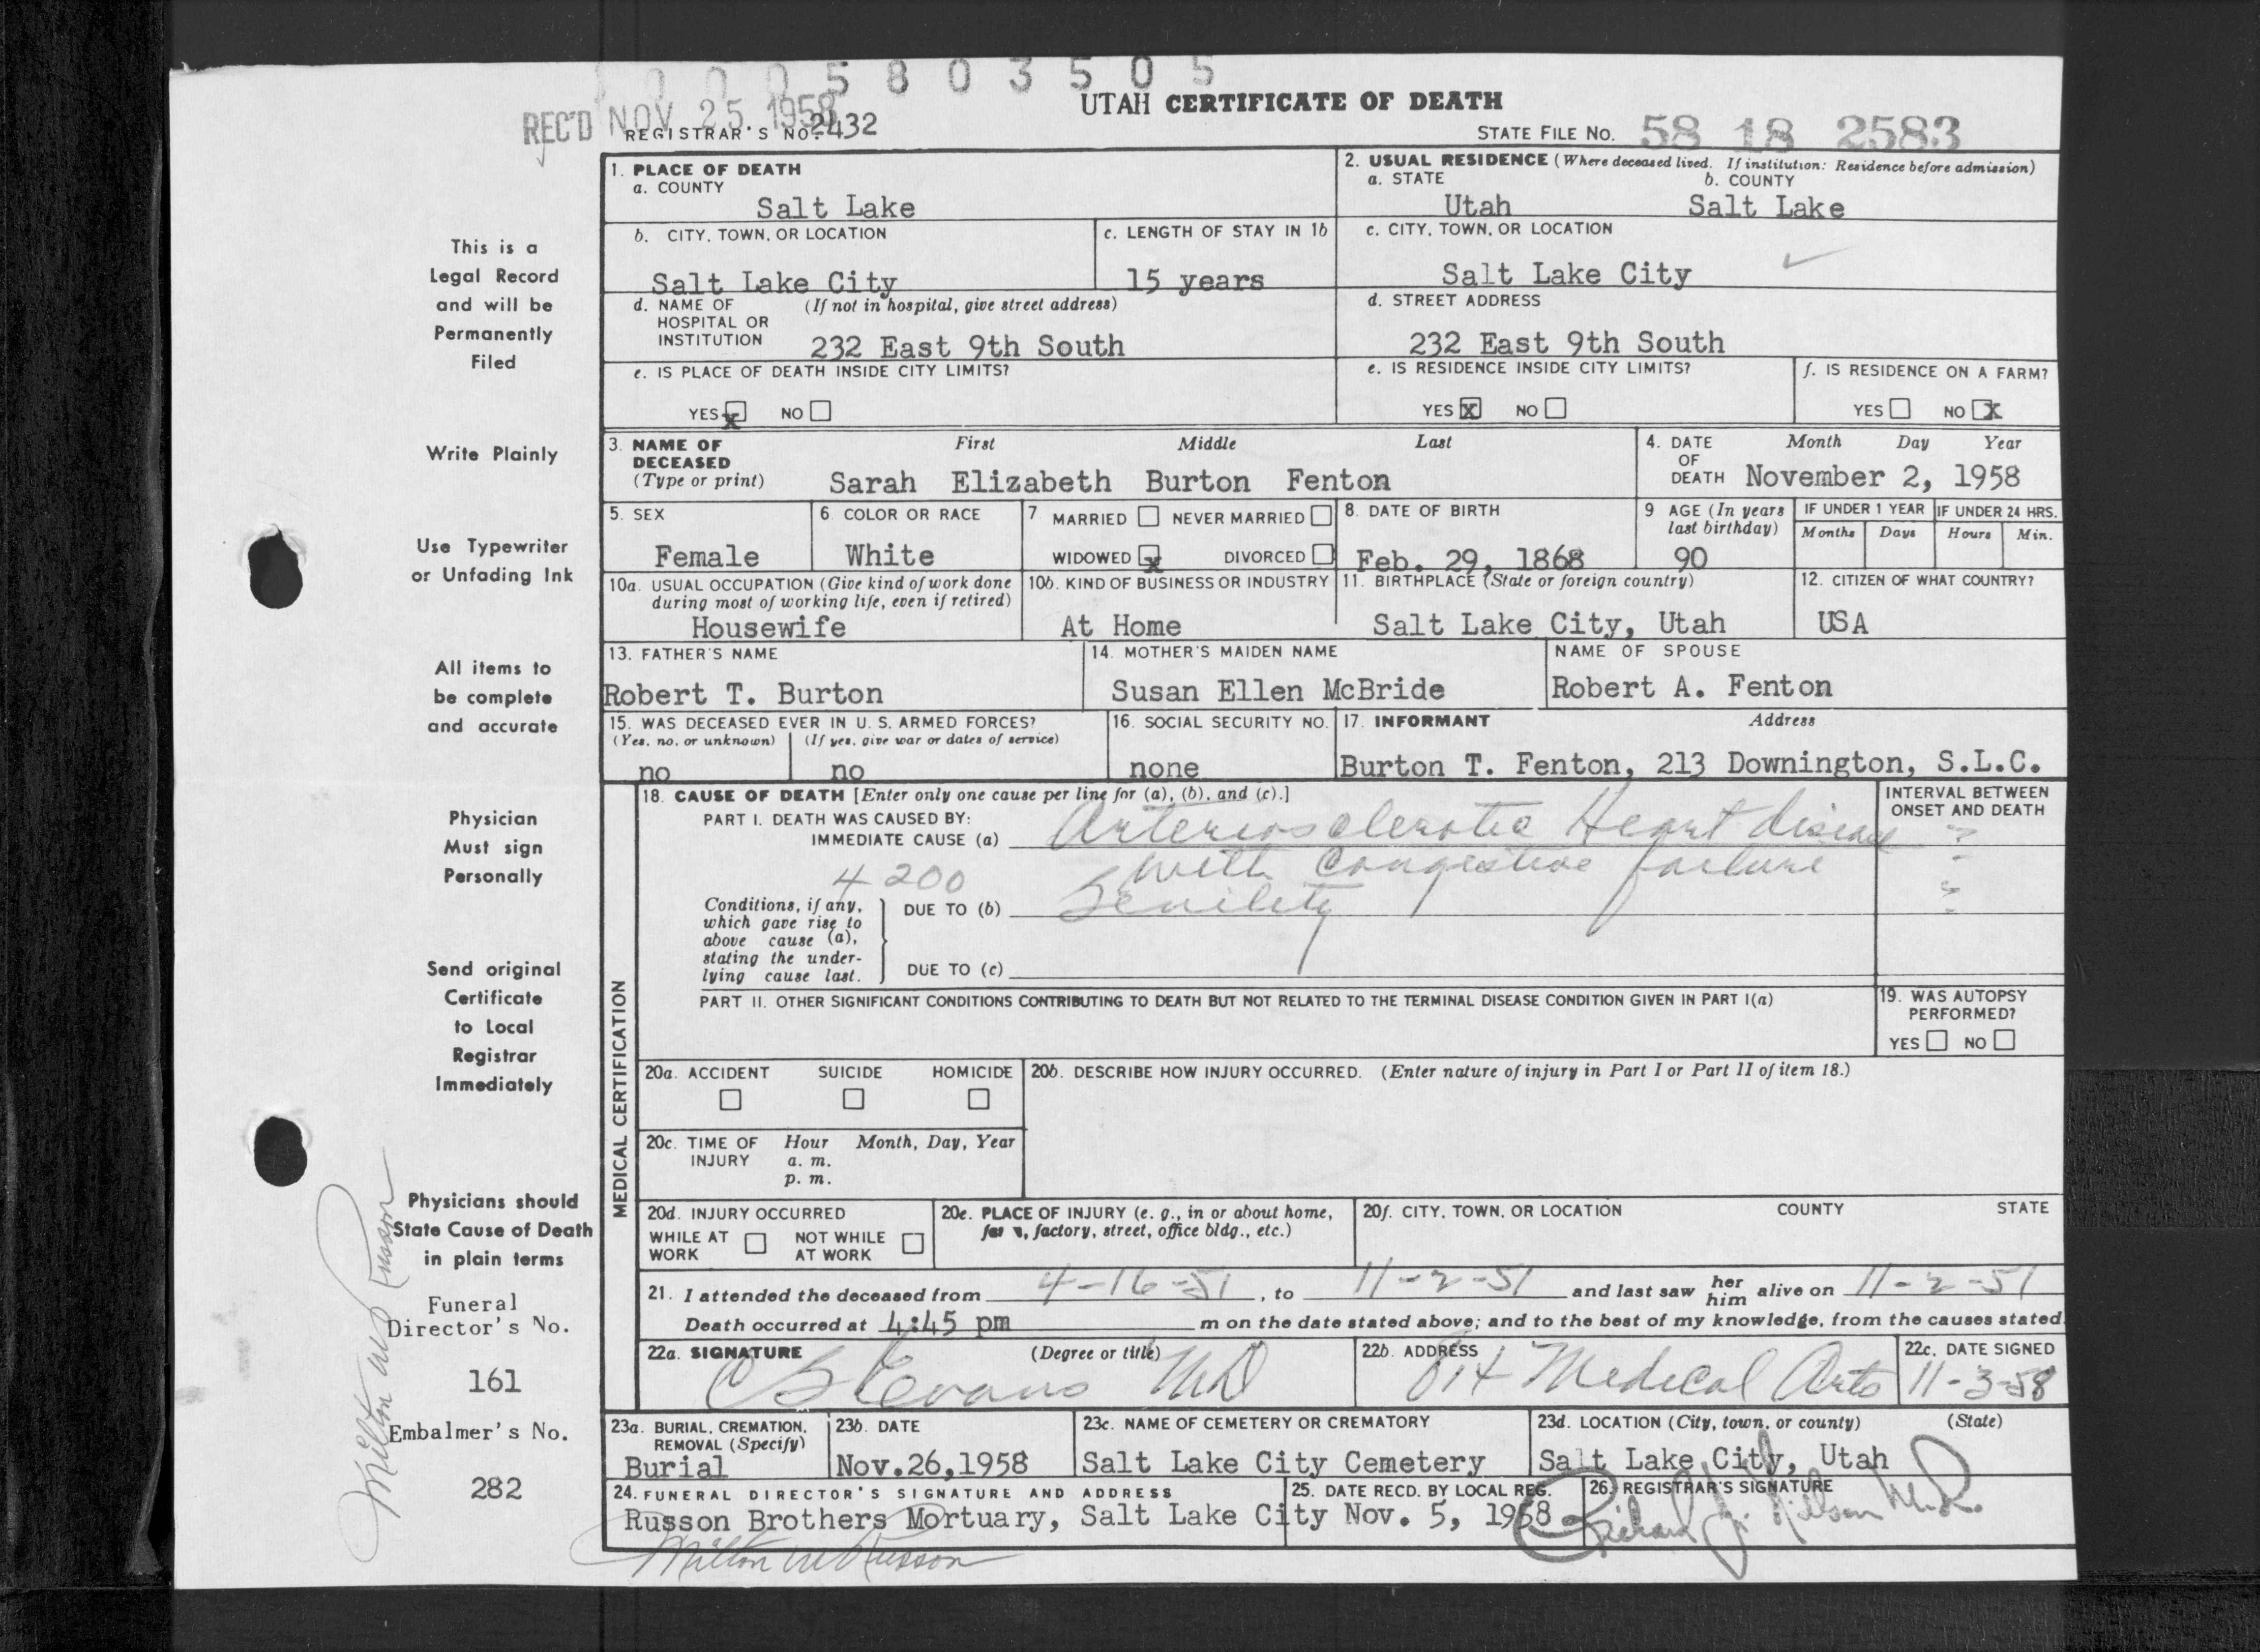 0 0 0 5 8 0 3 5 0 5
REC'D NOV 25 1958
REGISTRAR'S NO. 2432
UTAH CERTIFICATE OF DEATH
STATE FILE NO. 58 18 2583
This is a
Legal Record
and will be
Permanently
Filed
Write Plainly
Use Typewriter
or Unfading Ink
All items to
be complete
and accurate
Physician
Must sign
Personally
Send original
Certificate
to Local
Registrar
Immediately
Physicians should
State Cause of Death
in plain terms
Funeral
Director's No.
161
Embalmer's No.
282
Milton W Russon
1. PLACE OF DEATH
a. COUNTY
Salt Lake
2. USUAL RESIDENCE (Where deceased lived. If institution: Residence before admission)
a. STATE b. COUNTY
Utah Salt Lake
b. CITY, TOWN, OR LOCATION
Salt Lake City
c. LENGTH OF STAY IN 1b
15 years
c. CITY, TOWN, OR LOCATION
Salt Lake City
d. NAME OF (If not in hospital, give street address)
HOSPITAL OR
INSTITUTION 232 East 9th South
d. STREET ADDRESS
232 East 9th South
e. IS PLACE OF DEATH INSIDE CITY LIMITS?
YES x NO
e. IS RESIDENCE INSIDE CITY LIMITS?
YES X NO
f. IS RESIDENCE ON A FARM?
YES NO X
3. NAME OF First Middle Last
DECEASED
(Type or print) Sarah Elizabeth Burton Fenton
4. DATE Month Day Year
OF
DEATH November 2, 1958
5. SEX
Female
6. COLOR OR RACE
White
7 MARRIED NEVER MARRIED
WIDOWED x DIVORCED
8. DATE OF BIRTH
Feb. 29, 1868
9 AGE (In years
last birthday)
90
IF UNDER 1 YEAR IF UNDER 24 HRS.
Months Days Hours Min.
10a. USUAL OCCUPATION (Give kind of work done
during most of working life, even if retired)
Housewife
10b. KIND OF BUSINESS OR INDUSTRY
At Home
11. BIRTHPLACE (State or foreign country)
Salt Lake City, Utah
12. CITIZEN OF WHAT COUNTRY?
USA
13. FATHER'S NAME
Robert T. Burton
14. MOTHER'S MAIDEN NAME
Susan Ellen McBride
NAME OF SPOUSE
Robert A. Fenton
15. WAS DECEASED EVER IN U. S. ARMED FORCES?
(Yes, no, or unknown) (If yes, give war or dates of service)
no no
16. SOCIAL SECURITY NO.
none
17. INFORMANT Address
Burton T. Fenton, 213 Downington, S.L.C.
MEDICAL CERTIFICATION
18. CAUSE OF DEATH [Enter only one cause per line for (a), (b), and (c).]
INTERVAL BETWEEN
ONSET AND DEATH
PART I. DEATH WAS CAUSED BY:
IMMEDIATE CAUSE (a) Arteriosclerotic Heart disease ?
with Congestive failure
4200
Conditions, if any,
which gave rise to
above cause (a),
stating the under-
lying cause last.
DUE TO (b) Senility ?
DUE TO (c)
PART II. OTHER SIGNIFICANT CONDITIONS CONTRIBUTING TO DEATH BUT NOT RELATED TO THE TERMINAL DISEASE CONDITION GIVEN IN PART I(a)
19. WAS AUTOPSY
PERFORMED?
YES NO
20a. ACCIDENT SUICIDE HOMICIDE
20b. DESCRIBE HOW INJURY OCCURRED. (Enter nature of injury in Part I or Part II of item 18.)
20c. TIME OF Hour Month, Day, Year
INJURY a. m.
p. m.
20d. INJURY OCCURRED
WHILE AT NOT WHILE
WORK AT WORK
20e. PLACE OF INJURY (e. g., in or about home,
farm, factory, street, office bldg., etc.)
20f. CITY, TOWN, OR LOCATION COUNTY STATE
21. I attended the deceased from 4-16-51, to 11-2-51 and last saw her him alive on 11-2-51
Death occurred at 4:45 pm m on the date stated above; and to the best of my knowledge, from the causes stated
22a. SIGNATURE (Degree or title)
C S Evans MD
22b. ADDRESS
614 Medical Arts
22c. DATE SIGNED
11-3-58
23a. BURIAL, CREMATION,
REMOVAL (Specify)
Burial
23b. DATE
Nov.26,1958
23c. NAME OF CEMETERY OR CREMATORY
Salt Lake City Cemetery
23d. LOCATION (City, town, or county) (State)
Salt Lake City, Utah
24. FUNERAL DIRECTOR'S SIGNATURE AND ADDRESS
Russon Brothers Mortuary, Salt Lake City
Milton W Russon
25. DATE RECD. BY LOCAL REG.
Nov. 5, 1958
26. REGISTRAR'S SIGNATURE
Richard J. Nilson M.D.